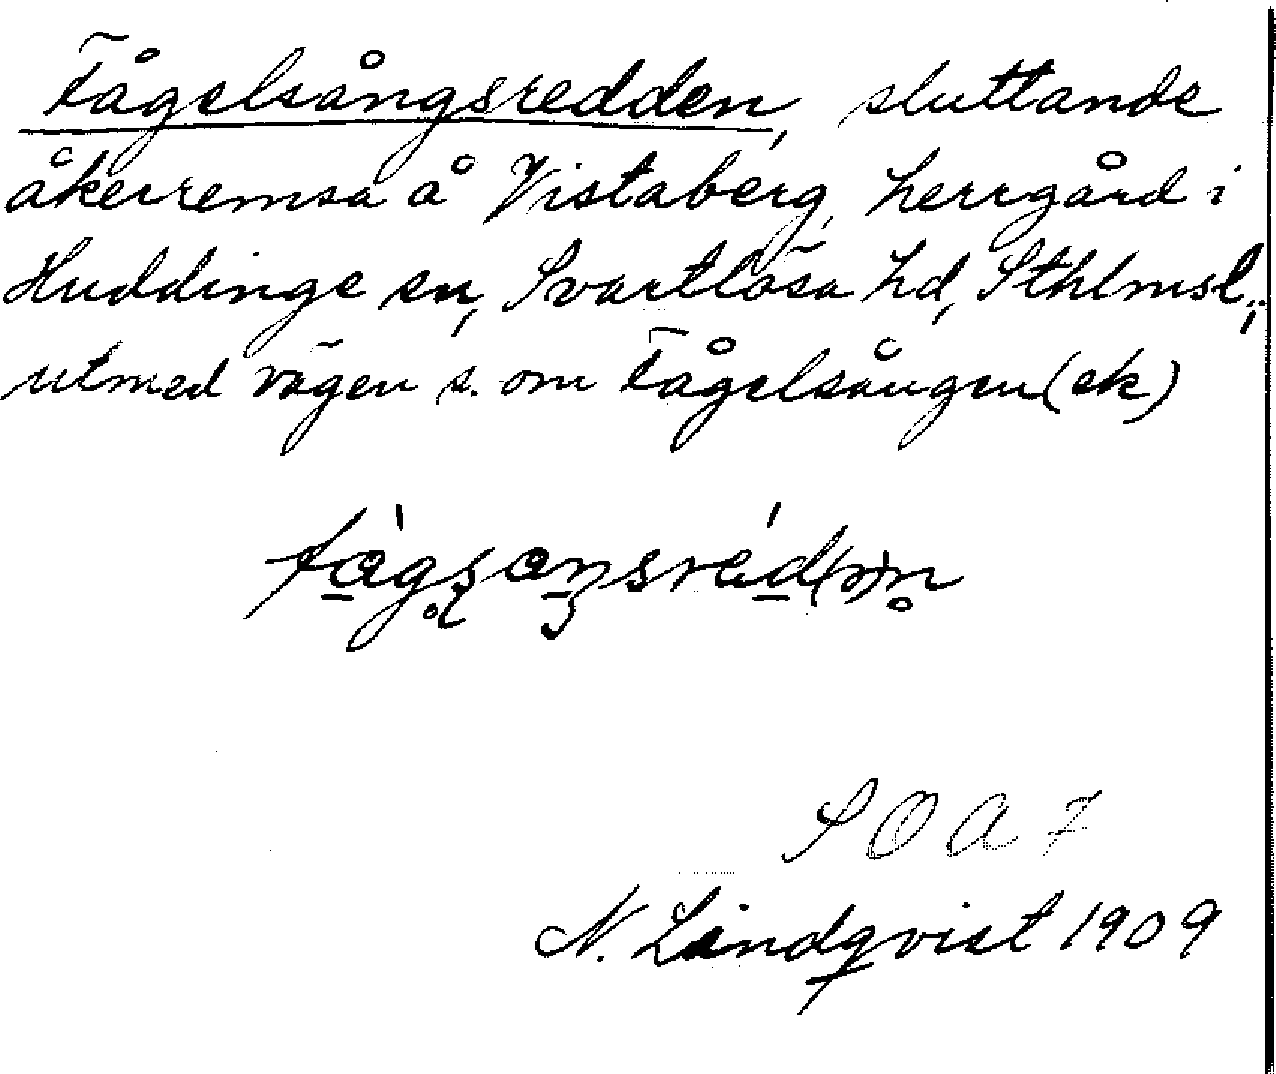 Fågelsångsredden, sluttande
åkerremsa å Vistaberg, herrgård i
Huddinge sn, Svartlösa hd, Sthlmsl.;
utmed vägen s. om Fågelsången (ek)
SOA 7
N. Lindqvist 1909